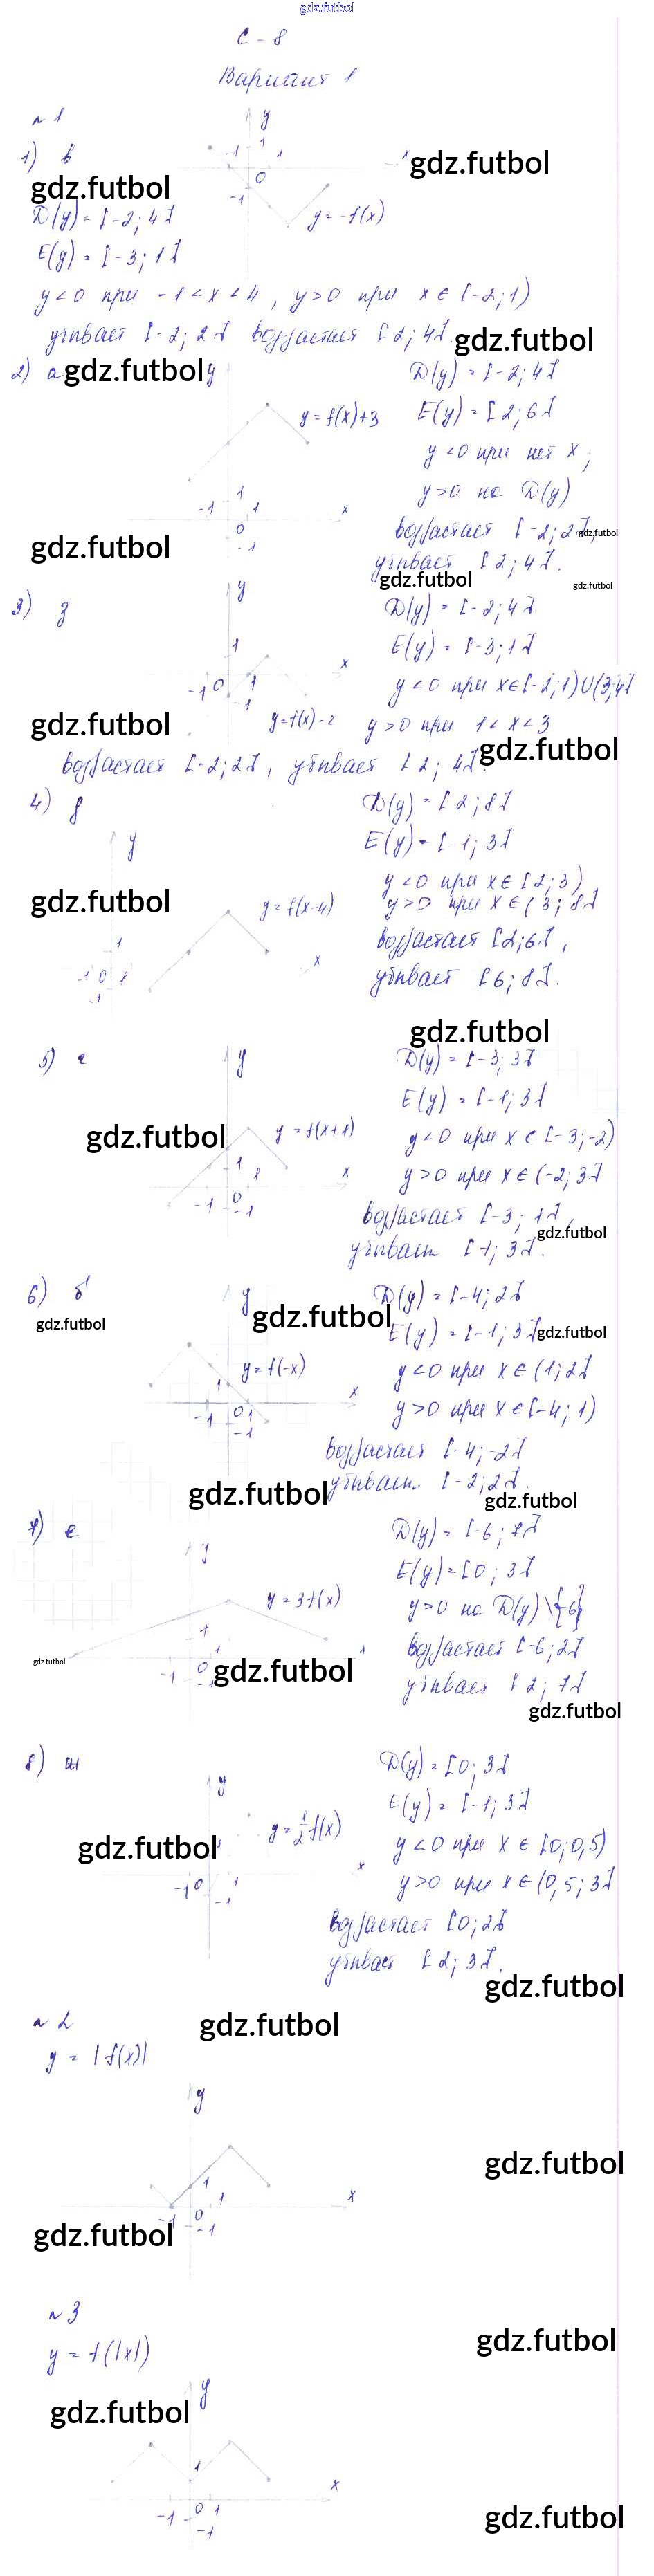 gdz.futbol
С - 8
Вариант 1
№1
1) в
y
-1
1
1
x
0
-1
y = -f(x)
gdz.futbol
gdz.futbol
D(y) = [-2; 4]
E(y) = [-3; 1]
y<0 при -1 < x < 4, y>0 при x ∈ [-2; 1)
убывает [-2; 2] возрастает [2; 4].
gdz.futbol
2) а
gdz.futbol
y
D(y) = [-2; 4]
y = f(x)+3
E(y) = [2; 6]
y<0 при нет x;
y>0 на D(y)
-1
1
1
x
0
-1
возрастает [-2; 2],
gdz.futbol
gdz.futbol
убывает [2; 4].
gdz.futbol
gdz.futbol
3) з
y
D(y) = [-2; 4]
1
E(y) = [-3; 1]
x
-1 0 1
-1
y<0 при x∈[-2; 1)U(3; 4]
gdz.futbol
y = f(x)-2
y>0 при 1 < x < 3
gdz.futbol
возрастает [-2; 2], убывает [2; 4].
4) д
D(y) = [2; 8]
y
E(y) = [-1; 3]
y<0 при x∈[2; 3)
gdz.futbol
y = f(x-4)
y>0 при x∈(3; 8]
1
x
-1 0 1
-1
возрастает [2; 6],
убывает [6; 8].
gdz.futbol
5) г
y
D(y) = [-3; 3]
E(y) = [-1; 3]
gdz.futbol
y = f(x+1)
y<0 при x∈[-3; -2)
1
1
x
y>0 при x∈(-2; 3]
-1
0
-1
возрастает [-3; 1],
gdz.futbol
убывает [-1; 3].
6) б
y
D(y) = [-4; 2]
gdz.futbol
gdz.futbol
E(y) = [-1; 3]
gdz.futbol
y = f(-x)
y<0 при x∈(1; 2]
1
x
-1
0 1
-1
y>0 при x∈[-4; 1)
возрастает [-4; -2]
убывает [-2; 2].
gdz.futbol
gdz.futbol
7) е
y
D(y) = [-6; 7]
E(y) = [0; 3]
y = 3f(x)
y>0 на D(y)\{6}
1
1
возрастает [-6; 2]
gdz.futbol
-1
0
gdz.futbol
убывает [2; 7]
gdz.futbol
8) ж
y
D(y) = [0; 3]
E(y) = [-1; 3]
y = 1/2 f(x)
gdz.futbol
1
y<0 при x∈[0; 0,5)
x
-1 0 1
-1
y>0 при x∈(0,5; 3]
возрастает [0; 2]
убывает [2; 3].
gdz.futbol
№2
gdz.futbol
y = |f(x)|
y
gdz.futbol
1
1
x
-1
0
-1
gdz.futbol
№3
y = f(|x|)
gdz.futbol
y
gdz.futbol
1
x
-1
0 1
-1
gdz.futbol